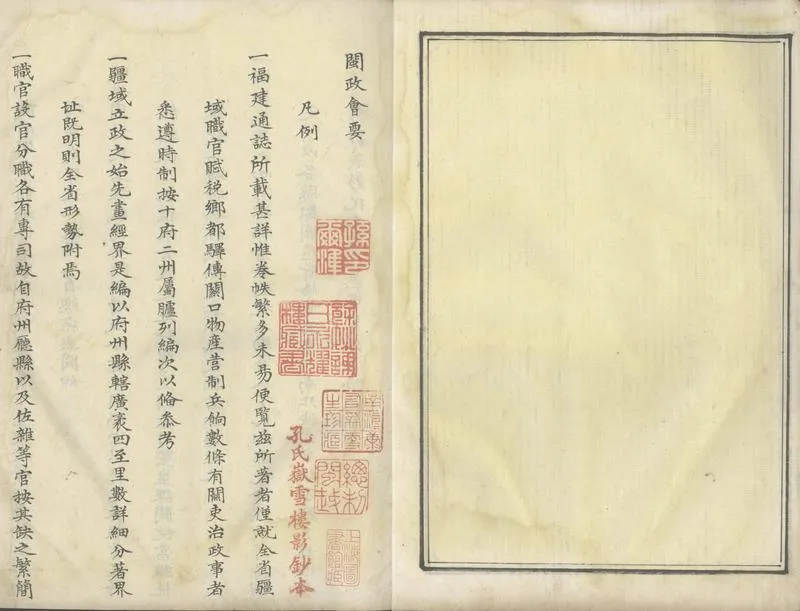 閩政會要
凡例
一福建通誌所載甚詳惟卷帙繁多未易便覽茲所著者僅就全省疆
域職官賦稅鄉都驛傳關口物產營制兵餉數條有關吏治政事者
悉遵時制按十府二州屬臚列編次以俻叅考
一疆域立政之始先畫經界是編以府州縣轄廣袤四至里數詳細分著界
址既明則全省形勢附焉
一職官設官分職各有專司故自府州廳縣以及佐雜等官按其缺之繁簡
孔氏嶽雪樓影鈔本
總制閩越
上海圖書館藏